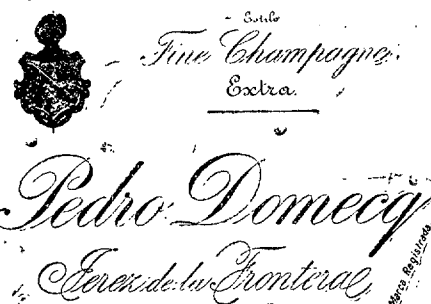 Estilo
Fine Champagne.
Extra.
Pedro Domecq
Jerez de la Frontera
Marca Registrada